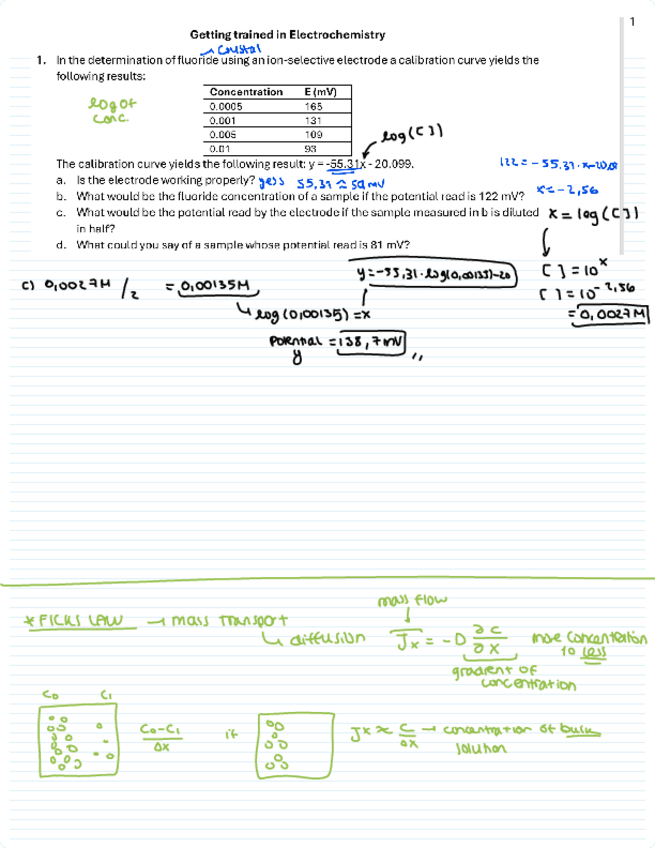 1
Getting trained in Electrochemistry
→ Crystal
1. In the determination of fluoride using an ion-selective electrode a calibration curve yields the
following results:
log of
conc.
Concentration E (mV)
0.0005 165
0.001 131
0.005 109
0.01 93
log([ ])
The calibration curve yields the following result: y = -55.31x - 20.099.
a. Is the electrode working properly? yess 55,31 ≈ 59 mV
b. What would be the fluoride concentration of a sample if the potential read is 122 mV?
c. What would be the potential read by the electrode if the sample measured in b is diluted
in half?
d. What could you say of a sample whose potential read is 81 mV?
x = -2,56
x = log([ ])
[ ] = 10^x
[ ] = 10^-2,56
= 0,0027M
c) 0,0027M /2 = 0,00135M
y = -55,31 · log(0,00135)-20
↳ log(0,00135) = x
Potential = 138,7 mV
y
mass flow
* FICKS LAW → mass transport
↳ diffusion
Jx = -D ∂C/∂X
more concentration
to less
gradient of
concentration
C0 C1
C0-C1/ΔX
if
Jx ≈ C/ΔX → concentration of bulk
solution